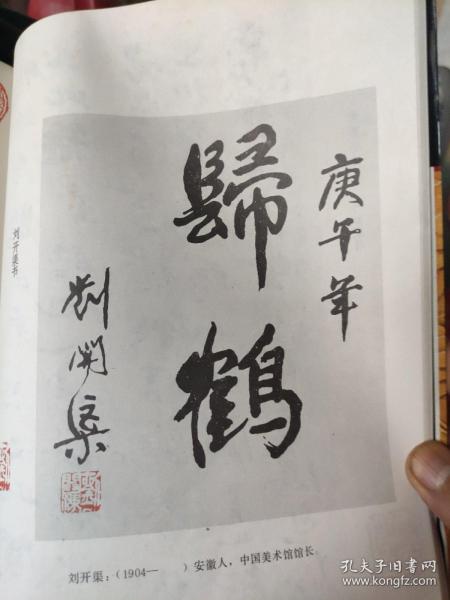 庚午年
歸鶴
刘開渠
刘开渠书
刘开渠：（1904—　　）安徽人，中国美术馆馆长。
孔夫子旧书网